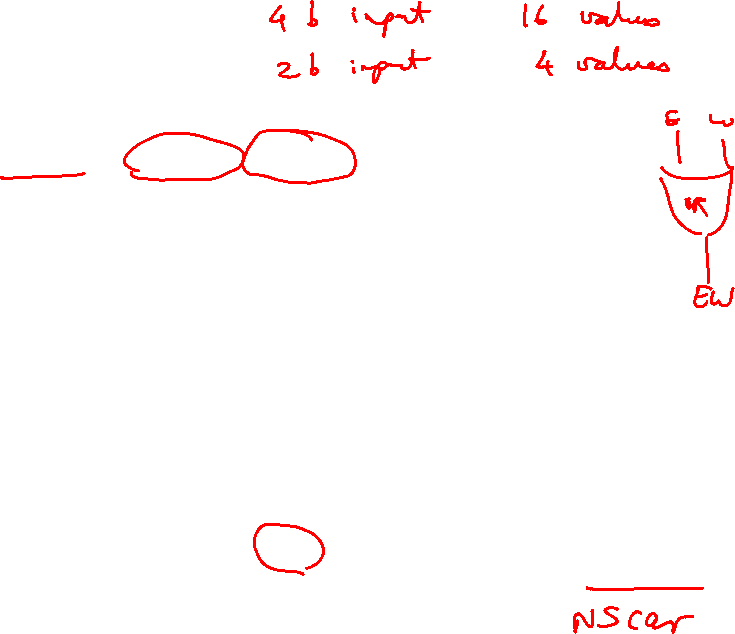 4 b input 16 values
2b input 4 values
E W
OR
EW
NScar